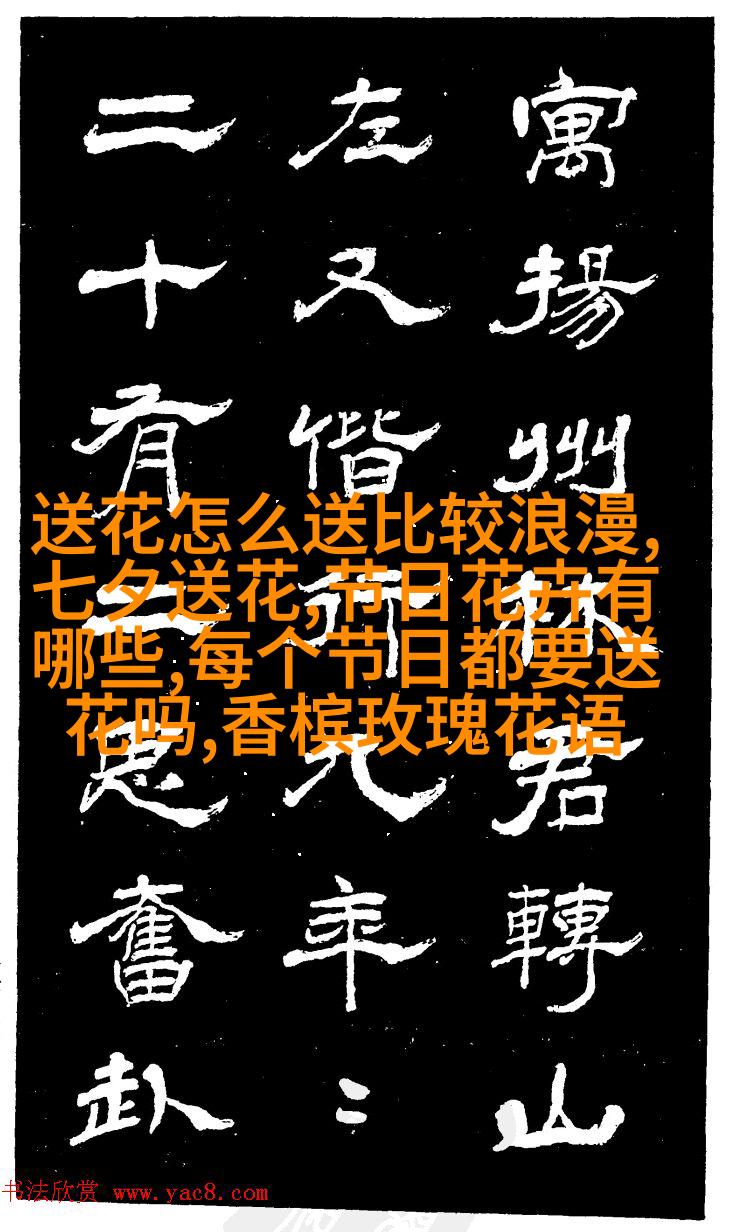 寓揚州林君轉山
左又偕行年〻
二十有思奮赴
送花怎么送比较浪漫,
七夕送花,节日花卉有
哪些,每个节日都要送
花吗,香槟玫瑰花语
书法欣赏 www.yac8.com